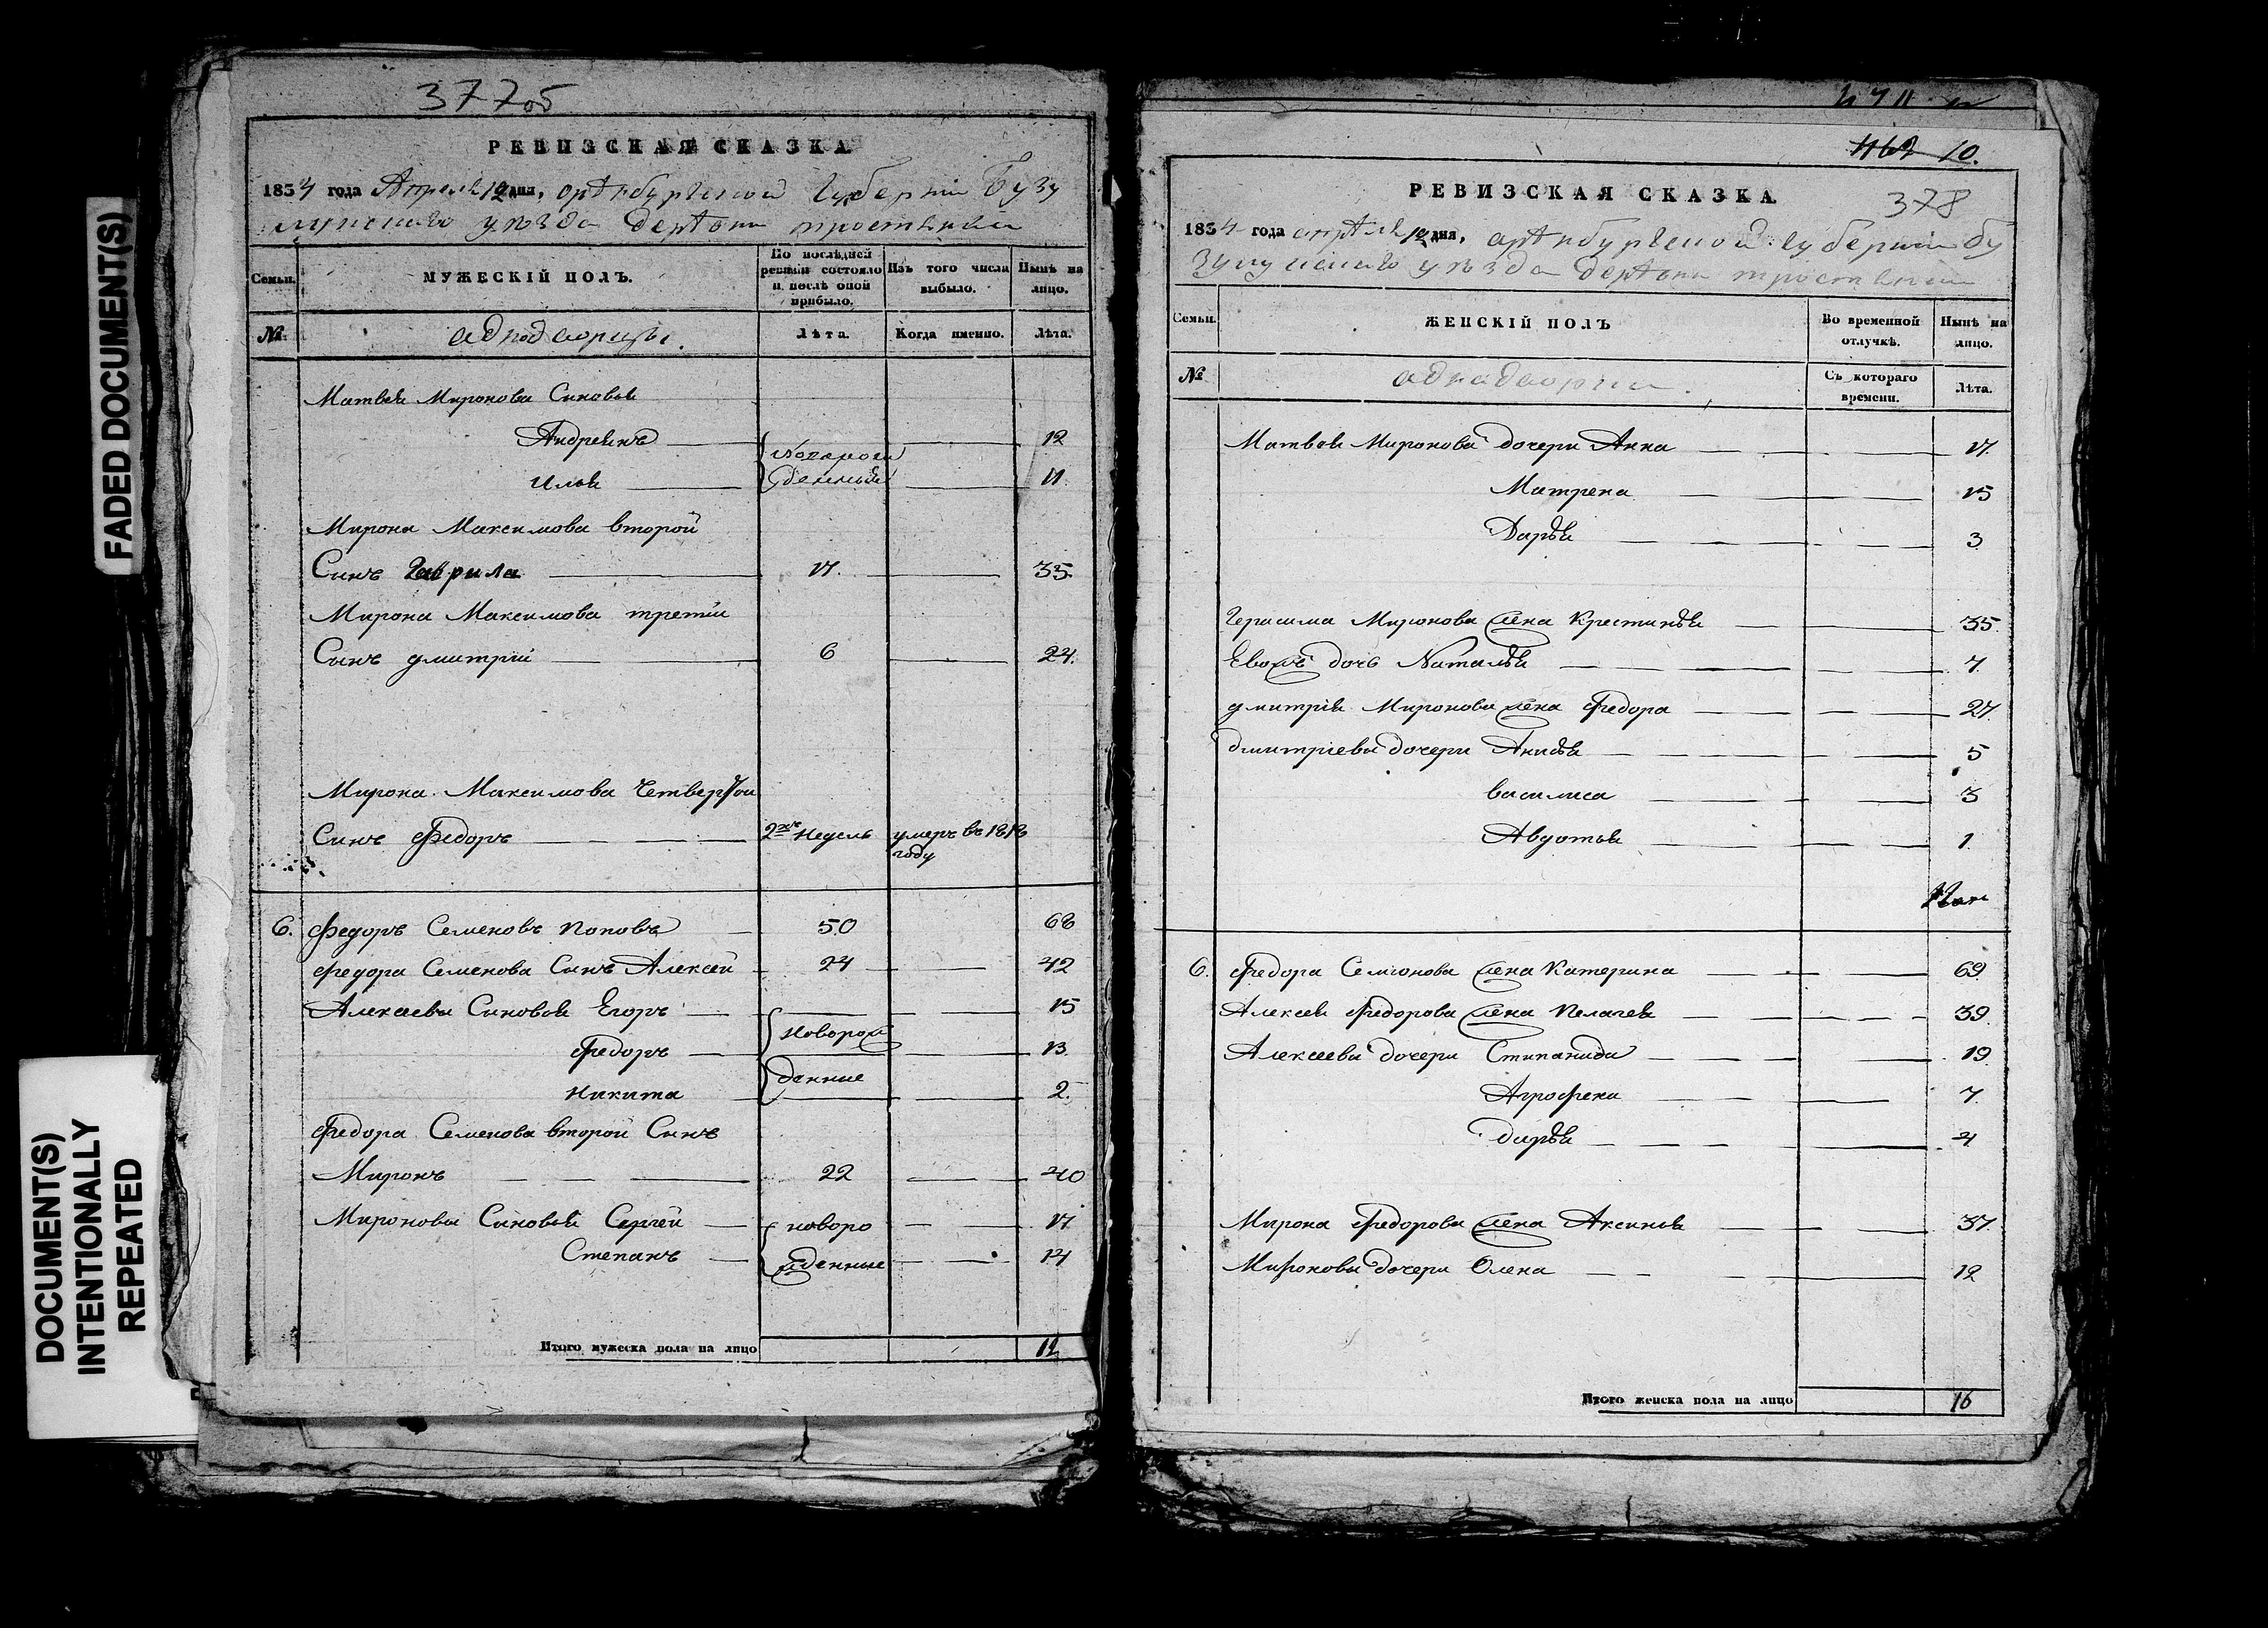 FADED DOCUMENT(S)
DOCUMENT(S)
INTENTIONALLY
REPEATED
377об
РЕВИЗСКАЯ СКАЗКА
1834 года Апреля 12 дня, орѣнбургской губернии Бузу
лукскаго уѣзда дерѣвни тростянки
Семьи.
МУЖЕСКІЙ ПОЛЪ.
По послѣдней ревизіи состояло и послѣ оной прибыло.
Изъ того числа выбыло.
Нынѣ на лицо.
№
аднодворцы.
Лѣта.
Когда именно.
Лѣта.
Матвея Миронова Сыновья
Андреянъ 12
Илья 11
Мирона Максимова второй
Сынъ Гаврила 17. 35
Мирона Максимова третiи
Сынъ дмитрий 6 24.
Мирона Максимова Четвертои
Сынъ Федоръ 2хъ недель умеръ въ 1818
году
6. Федоръ Семеновъ Поповъ 50 68
Федора Семенова Сынъ Алексей 24 42
Алексеевы Сыновья Егоръ 15
новорож
Федоръ 13
денные
Никита 2.
Федора Семенова второй Сынъ
Миронъ 22 40
Мироновы Сыновья Сергей новоро 17
Степанъ жденные 14
Итого мужеска пола на лицо 12
10.
РЕВИЗСКАЯ СКАЗКА
378
1834 года апрѣля 12 дня, арѣнбургской губернии бу
зулускаго уѣзда дерѣвни тростянки
Семьи.
ЖЕНСКІЙ ПОЛЪ
Во временной отлучкѣ.
Нынѣ на лицо.
№
Съ котораго времени.
Лѣта.
Матвея Миронова дочери Анна 17.
Матрена 15
Дарья 3
Миронова жена Крестинья 35.
Евожъ дочь Наталья 7.
дмитрия Миронова жена Федора 27.
дмитриевы дочери 5
василиса 3
Авдотья 1.
6. Федора Семионова жена Катерина 69
Алексея Федорова жена Пелагея 39
Алексеевы дочери Стипанида 19
Агрофена 7.
дарья 4
Мирона Федорова жена Аксинья 37.
Мироновы дочери Олена 12
Итого женска пола на лицо 16